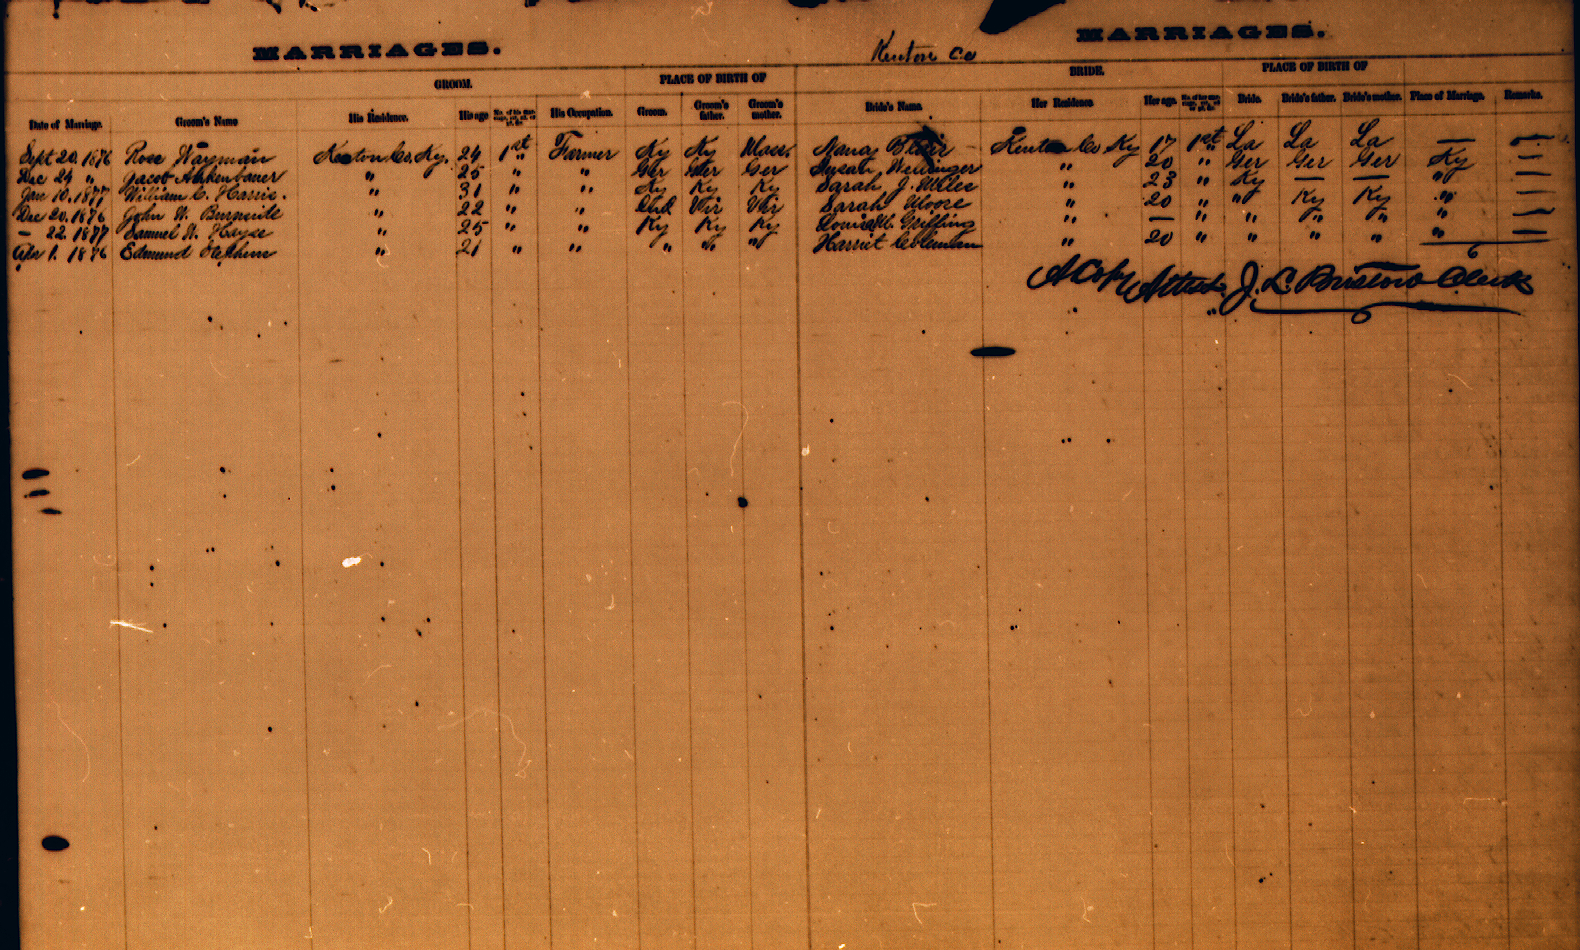 MARRIAGES. Kenton Co MARRIAGES.
GROOM. PLACE OF BIRTH OF BRIDE. PLACE OF BIRTH OF
Date of Marriage. Groom's Name His Residence. His age His Occupation. Groom. Groom's father. Groom's mother. Bride's Name. Her Residence. Her age. Bride. Bride's father. Bride's mother. Place of Marriage. Remarks.
Sept 20. 1876 Rose Wayman Kenton Co. Ky. 24 1st Farmer Ky Ky Mass. Nancy Blair Kenton Co Ky 17 1st La La La — —
Dec 24 " Jacob " 25 " " Ger Ger Ger Susan " 20 " Ger Ger Ger Ky —
Jan 10. 1877 William C. Harris. " 31 " " Ky Ky Ky Sarah J. " 23 " Ky — — " —
Dec 20. 1876 John W. Burnside " 22 " " Ind Vir Vir Sarah Moore " 20 " " Ky Ky " —
— 22. 1877 Samuel W. Hayse " 25 " " Ky Ky Ky Griffing " — " " " " " —
Apr 1. 1876 Edmund Stephens " 21 " " " " " Harriet Coleman " 20 " " " " " —
A Copy Attest J. L. Bristow Clerk